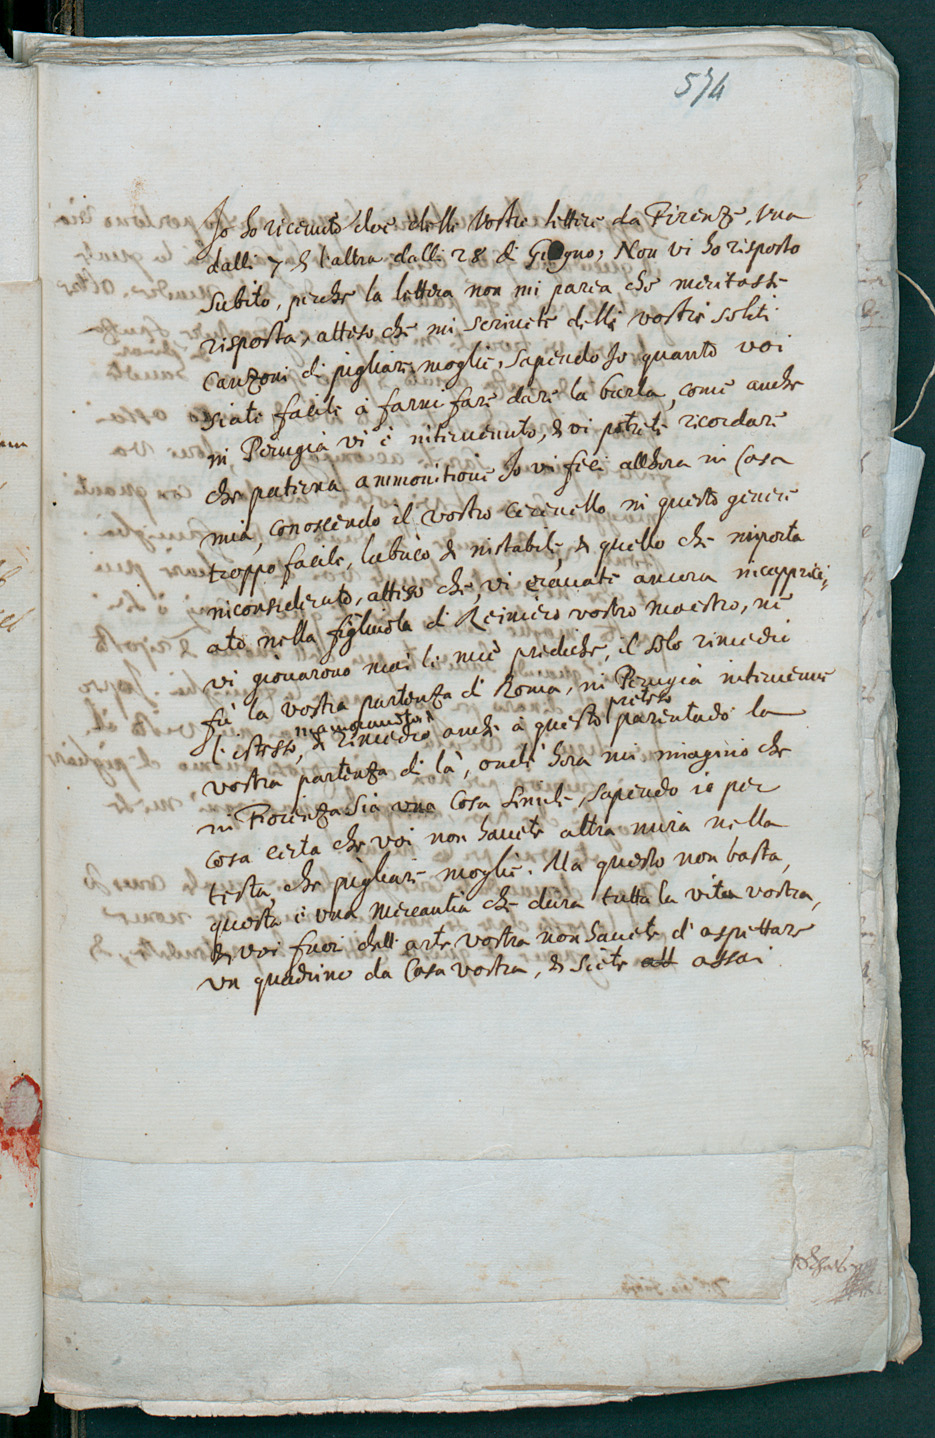 574
Io ho riceuuto due delle Vostre lettere da Firenze, una
dalli 7 & l'altra dalli 28 di Giogno; Non vi ho risposto
subito, perche la lettera non mi parea che meritasse
risposta, atteso che mi scriuete delle vostre solite
Canzoni di pigliare moglie, sapendo Io quanto voi
siate facile à farui fare dare la burla, come anche
in Perugia vi è interuenuto, & vi potrete ricordare
che paterna ammonitione Io vi feci allhora in Casa
mia, conoscendo il vostro ceruello in questo genere
troppo facile, lubrico & instabile, & quello che importa
inconsiderato, atteso che, vi erauate ancora incapprici=
ato nella figliuola di Reiniero vostro maestro, ne
vi giouarono mai le mie prediche, il solo rimedio
fù la vostra partenza di Roma, in Perugia interuenne
preteso
l'istesso, & rimedio anche à questo parentado la
vostra partenza di là, onde hora mi imagino che
in Fiorenza sia una Cosa simile, sapendo io per
cosa certa che voi non hauete altra mira nella
testa, che pigliare moglie. Ma questo non basta,
questa è una mercantia che dura tutta la vita vostra,
& voi fuori dell'arte vostra non hauete d'aspettare
un quadrino da Casa vostra, & siete att assai